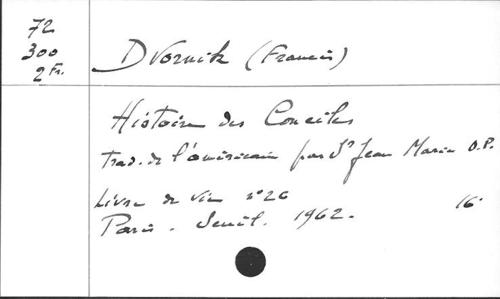 72
300
2 Fr.
Dvornik (Francis)
Histoire des Conciles
trad. de l'américain par Sr Jean Marie O.P.
Livre de Vie n° 26
Paris. Seuil. 1962. 16°